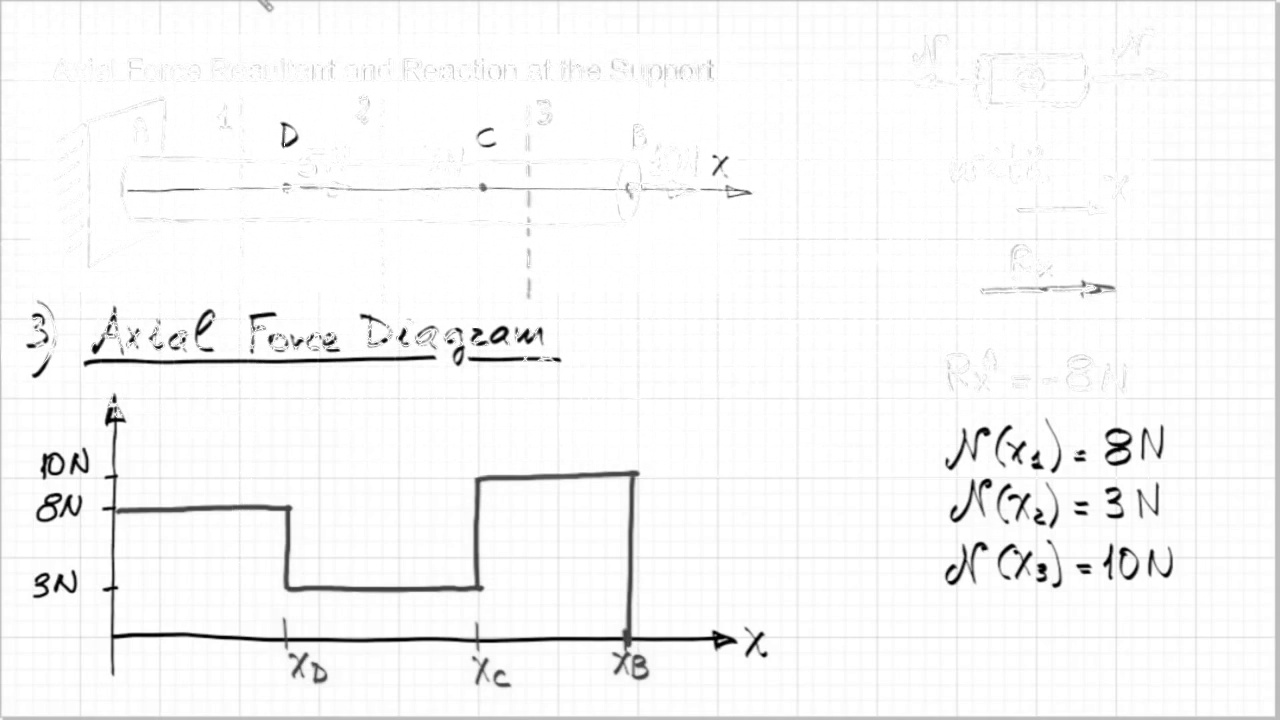 Axial Force Resultant and Reaction at the Support
N N
A 1 D 2 C 3 B
5N 7N 10N X
with: X
Rx
3) Axial Force Diagram
Rxᴬ = -8N
10N
8N
3N
X_D X_C X_B X
N(x₁) = 8N
N(x₂) = 3N
N(x₃) = 10N